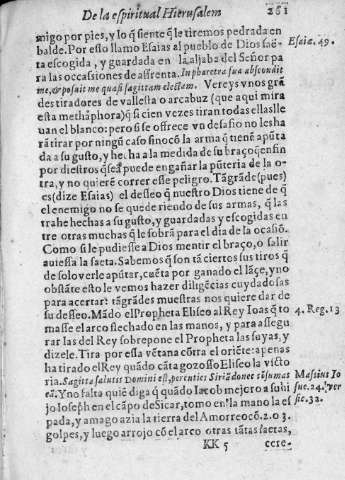 De la espiritual Hierusalem 261
migo por pies, y lo q̃ siente q̃ le tiremos pedrada en
balde. Por esso llamo Esaias al pueblo de Dios saë-
ta escogida, y guardada en la aljaba del Señor pa
ra las occasiones de affrenta. In pharetra sua abscondit
me, & posuit me quasi sagittam electam. Vereys vnos grã
des tiradores de vallesta o arcabuz (que aqui mira
esta methaphora) q̃ si cien vezes tiran todas ellas lle
uan el blanco: pero si se offresce vn desafio no lesha
rã tirar por ningũ caso sino cõ la arma q̃ tienẽ apũta
da a su gusto, y hecha a la medida de su braço q̃ en fin
por diestros q̃ seã puede engañar la pũteria de la o-
tra, y no quierẽ correr esse peligro. Tã grãde (pues)
es (dize Esaias) el desseo q̃ nuestro Dios tiene de q̃
el enemigo no se quede riendo de sus armas, q̃ las
trahe hechas a su gusto, y guardadas y escogidas en
tre otras muchas q̃ le sobrã para el dia de la ocasiõ.
Como si le pudiesse a Dios mentir el braço, o salir
auiessa la saeta. Sabemos q̃ son tã ciertos sus tiros q̃
de solo verle apũtar, cuẽta por ganado el lãçe, y no
obstãte esto le vemos hazer diligẽcias cuydadosas
para acertar: tã grãdes muestras nos quiere dar de
su desseo. Mãdo el Propheta Eliseo al Rey Ioas q̃ to
masse el arco flechado en las manos, y para assegu
rar las del Rey sobrepone el Propheta las suyas, y
dizele. Tira por essa vẽtana cõtra el oriẽte: apenas
ha tirado el Rey quãdo cãta gozoso Eliseo la victo
ria. Sagitta salutis Domini est, percuties Siriã donec cõsumas
eã. Y no falta quiẽ diga q̃ quãdo Iacob mejoro a su hi
jo Ioseph en el cãpo de Sicar, tomo en la mano la es
pada, y amago azia la tierra del Amorreo cõ.2.o 3.
golpes, y luego arrojo cõ el arco otras tãtas saetas,
KK 5 cere-
Esaiæ. 49.
4. Reg. 13
Masius Io
sue. 24. ver
sic. 32.